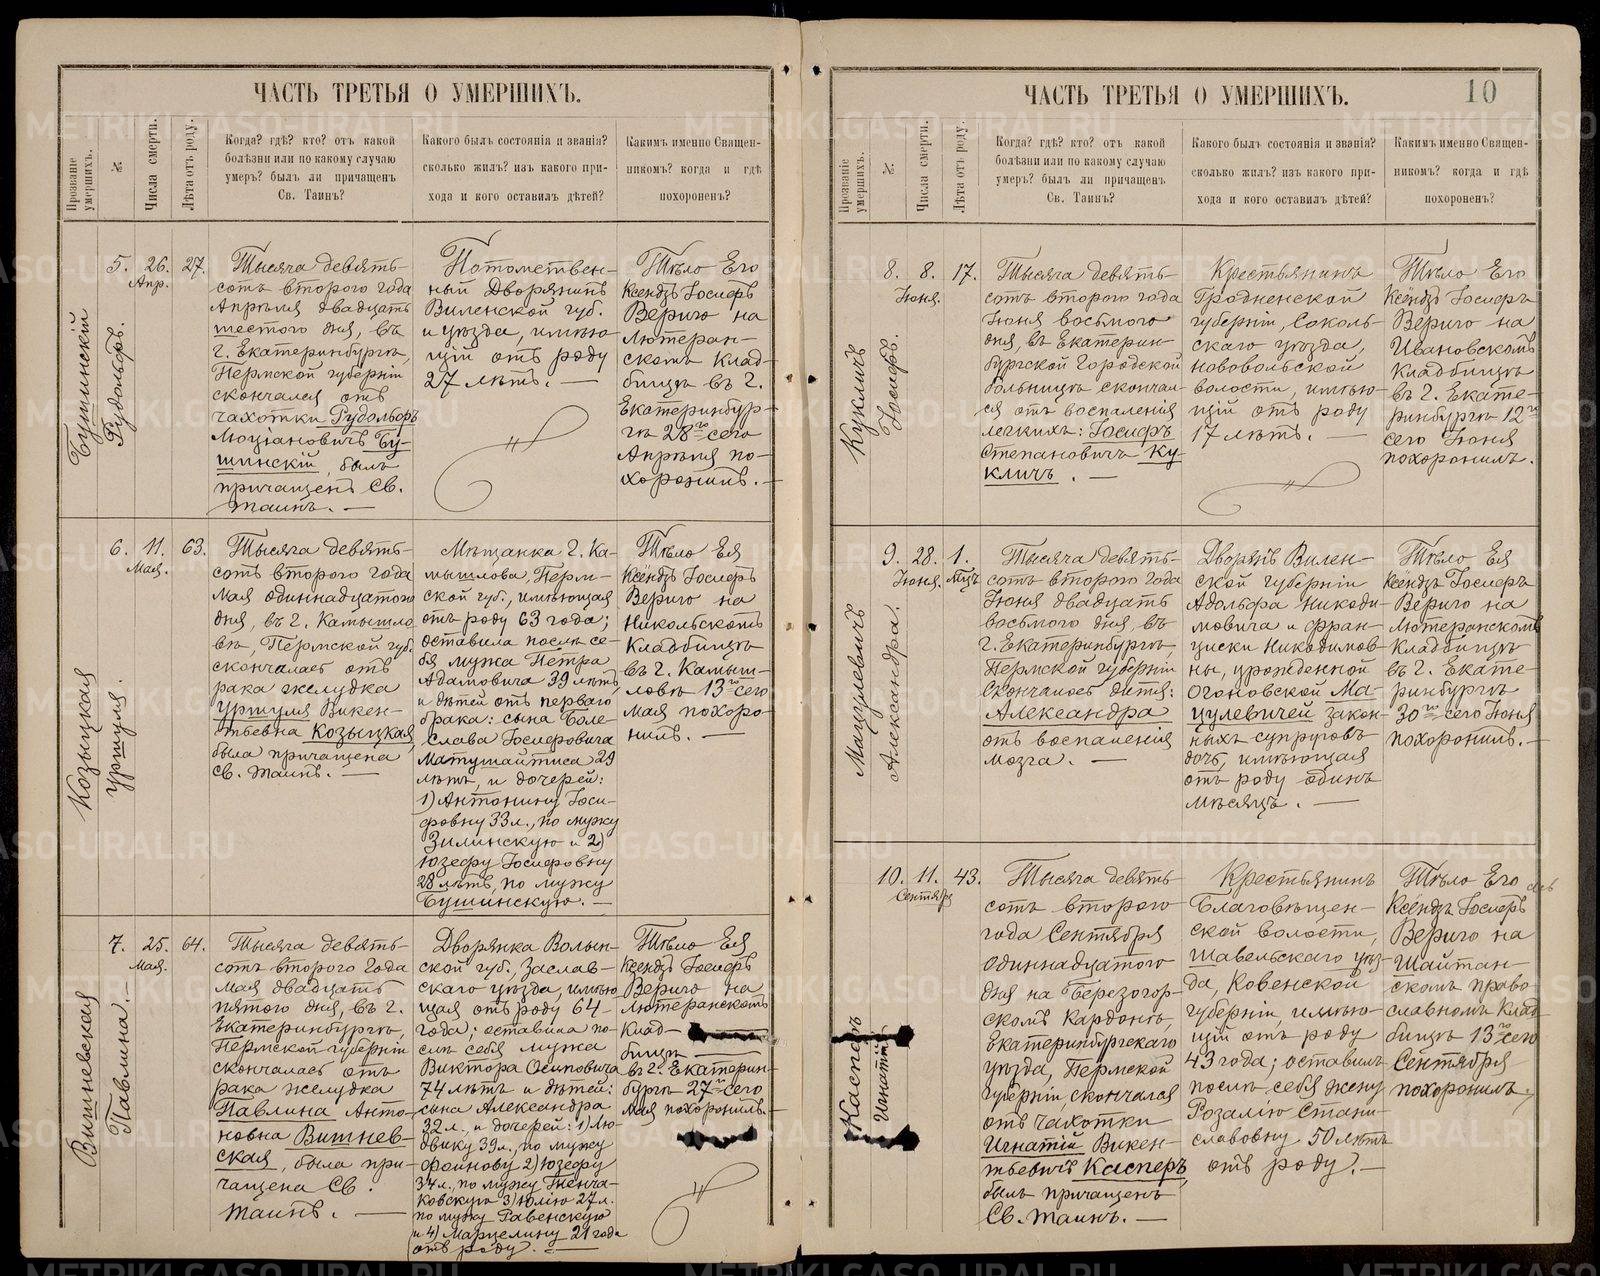 ЧАСТЬ ТРЕТЬЯ О УМЕРШИХЪ.
Прозваніе умершихъ.
№.
Числа смерти.
Лѣта отъ роду.
Когда? гдѣ? кто? отъ какой
болѣзни или по какому случаю
умеръ? былъ ли причащенъ
Св. Таинъ?
Какого былъ состоянія и званія?
сколько жилъ? изъ какого при-
хода и кого оставилъ дѣтей?
Какимъ именно Священ-
никомъ? когда и гдѣ
похороненъ?
Бушинскій
Рудольфъ.
5.
26.
Апр.
27.
Тысяча девять-
сотъ второго года
Апрѣля двадцать
шестого дня, въ
г. Екатеринбургѣ,
Пермской губерніи
скончался отъ
чахотки Рудольфъ
Люціановичъ Бу-
шинскій, былъ
причащенъ Св.
Таинъ. —
Потомствен-
ный Дворянинъ
Виленской губ.
и уѣзда, имѣю-
щій отъ роду
27 лѣтъ. —
Тѣло Его
Ксендзъ Іосифъ
Вериго на
Лютеран-
скомъ Клад-
бищѣ въ г.
Екатеринбур-
гѣ 28го сего
Апрѣля по-
хоронилъ. —
Козыцкая
Уршуля.
6.
11.
Мая.
63.
Тысяча девять-
сотъ второго года
Мая одиннадцатого
дня, въ г. Камышло-
вѣ, Пермской губ.
скончалась отъ
рака желудка
Уршуля Викен-
тьевна Козыцкая,
была причащена
Св. Таинъ. —
Мѣщанка г. Ка-
мышлова, Перм-
ской губ., имѣющая
отъ роду 63 года;
оставила послѣ се-
бя мужа Петра
Адамовича 39 лѣтъ,
и дѣтей отъ перваго
брака: сына Боле-
слава Іосифовича
Матушайтиса 29
лѣтъ, и дочерей:
1) Антонину Іоси-
фовну 33 л., по мужу
Зилинскую и 2)
Юзефу Іосифовну
28 лѣтъ, по мужу
Бушинскую. —
Тѣло Ея
Ксёндзъ Іосифъ
Вериго на
Никольскомъ
Кладбищѣ
въ г. Камыш-
ловѣ 13го сего
Мая похоро-
нилъ. —
Вишневская
Павлина. —
7.
25.
Мая.
64.
Тысяча девять-
сотъ второго года
Мая двадцать
пятого дня, въ г.
Екатеринбургѣ,
Пермской губерніи
скончалась отъ
рака желудка
Павлина Анто-
новна Вишнев-
ская, была при-
чащена Св.
Таинъ. —
Дворянка Волын-
ской губ., Заслав-
скаго уѣзда, имѣю-
щая отъ роду 64
года; оставила по-
слѣ себя мужа
Виктора Осиповича
74 лѣтъ и дѣтей:
сына Александра
32 л., и дочерей: 1) Лю-
двику 39 л., по мужу
Фоинову 2) Юзефу
34 л., по мужу
ковскую 3) Юлію 27 л.
по мужу Равенскую
и 4) Марцелину 21 года
отъ роду. —
Тѣло Ея
Ксендзъ Іосифъ
Вериго на
Лютеранскомъ
Клад-
бищѣ
въ г. Екатерин-
бургѣ 27го сего
Мая похоронилъ. —
ЧАСТЬ ТРЕТЬЯ О УМЕРШИХЪ.
10
Прозваніе умершихъ.
№.
Числа смерти.
Лѣта отъ роду.
Когда? гдѣ? кто? отъ какой
болѣзни или по какому случаю
умеръ? былъ ли причащенъ
Св. Таинъ?
Какого былъ состоянія и званія?
сколько жилъ? изъ какого при-
хода и кого оставилъ дѣтей?
Какимъ именно Священ-
никомъ? когда и гдѣ
похороненъ?
Кукличъ
Іосифъ.
8.
8.
Іюня.
17.
Тысяча девять-
сотъ второго года
Іюня восьмого
дня, въ Екатерин-
бургской Городской
больницѣ скончал-
ся отъ воспаленія
легкихъ: Іосифъ
Степановичъ Ку-
кличъ. —
Крестьянинъ
Гродненской
губерніи, Соколь-
скаго уѣзда,
Нововольской
волости, имѣю-
щій отъ роду
17 лѣтъ. —
Тѣло Его
Ксёндзъ Іосифъ
Вериго на
Ивановскомъ
Кладбищѣ
въ г. Екате-
ринбургѣ 12го
сего Іюня
похоронилъ.
Мацулевичъ
Александра.
9.
28.
Іюня.
1.
Мѣц.
Тысяча девять-
сотъ второго года
Іюня двадцать
восьмого дня въ
г. Екатеринбургѣ,
Пермской губерніи
скончалось дитя:
Александра
отъ воспаленія
мозга. —
Дворянъ Вилен-
ской губерніи
Адольфа Никоди-
мовича и Фран-
циски Никодимов-
ны, урожденной
Огоновской Ма-
цулевичей закон-
ныхъ супруговъ
дочь, имѣющая
отъ роду одинъ
мѣсяцъ. —
Тѣло Ея
Ксендзъ Іосифъ
Вериго на
Лютеранскомъ
Кладбищѣ
въ г. Екате-
ринбургѣ
30го сего Іюня
похоронилъ. —
Касперъ
Игнатій
10.
11.
Сентября
43.
Тысяча девять-
сотъ второго
года Сентября
одиннадцатого
дня на Березогор-
скомъ Кардонѣ,
Екатеринбургскаго
уѣзда, Пермской
губерніи, скончался
отъ чахотки
Игнатій Викен-
тьевичъ Касперъ,
былъ причащенъ
Св. Таинъ. —
Крестьянинъ
Благовѣщен-
ской волости,
Шавельскаго уѣз-
да, Ковенской
губерніи, имѣю-
щій отъ роду
43 года; оставилъ
послѣ себя жену
Розалію Стани-
славовну 50 лѣтъ
отъ роду. —
Тѣло Его
Ксёндзъ Іосифъ
Вериго на
Шайтан-
скомъ право-
славномъ Клад-
бищѣ 13го сего
Сентября
похоронилъ.
METRIKI.GASO-URAL.RU